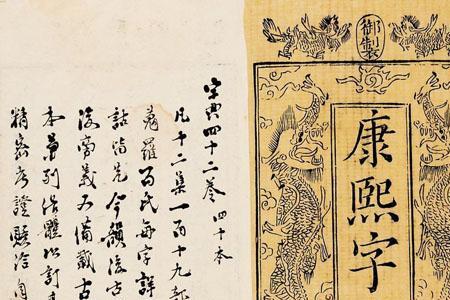 御製
康熙字
字典四十二卷 四十本
凡十二集一百十九部
蒐羅百氏每字詳
詁先今韻後古
後旁義又備載古
本列俗體以訂
精密考證賅洽自